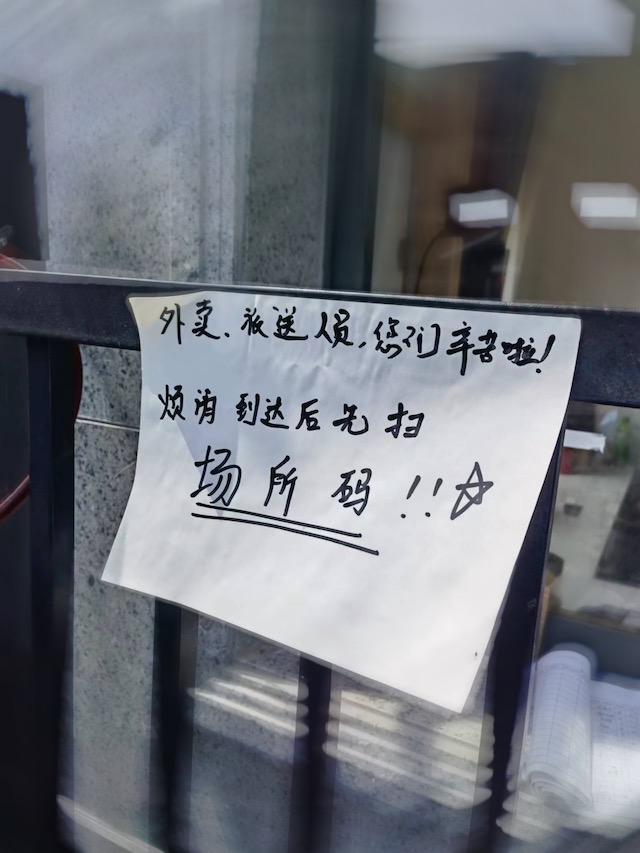 外卖、派送人员,您们辛苦啦!
烦请到达后先扫
场所码!!☆